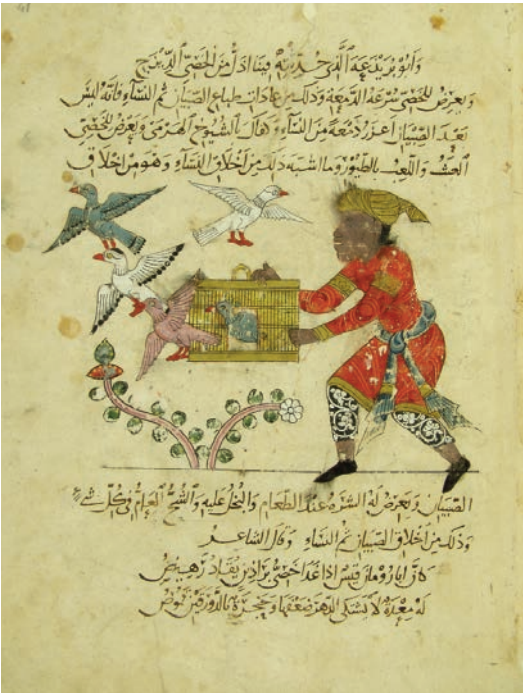 وَابُو بريدعة الَّذي حُدِّثتِهِ فينَا اذلُّ مِنَ الخَصِّي الدَّيزَجِ
وَيعرضُ للخَصّي سُرعَة الدَّمعَةِ وَذلكَ مِن عَادَاتِ طبائعِ الصّبيَان ثم النّسَاءِ فَانَّهُ لَيسَ
بَعدَ الصّبيَانِ اغزر دَمعَةً مِنَ النّسَاءِ وكفاك بالشيُوخِ الهَرمىَ وَيَعرضُ للخَصّي
العبثُ وَاللّعبُ بالطّيُورِ وَمَا اشبَهَ ذلكَ مِن اخلَاقِ النّسَاءِ وَهُوَ مِن اخلَاقِ
الصّبيَانِ وَيَعرضُ لهُ الشّرهُ عندَ الطّعَامِ وَالبُخلُ عَليهِ وَالشُّحُّ العَامُّ في كُلّ شَيءٍ
وَذلكَ مِن اخلَاقِ الصّبيَانِ ثم النّسَاءِ وَقَالَ الشّاعِرُ
كَانَّ ابَا رُومانَ قيسًا اذَا غَدَا خَصِيُّ بَرَاذِينٍ يُقَادُ رَهِيصُ
لَهُ مِعدَةٌ لَا يَشتَكى الدّهرَ ضَعفَهَا وَحَنجَرَةٌ بالدَّورَقَينِ قَمُوصُ